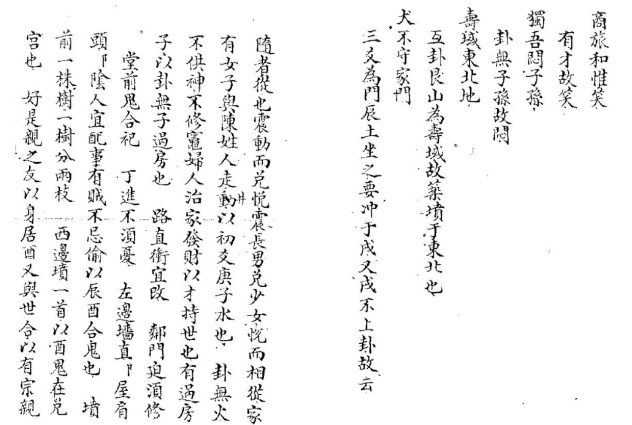 商旅和性笑
有才故笑
獨吾悶子孫
卦無子孫故悶
壽域東北地
互卦艮山為壽域故築墳于東北也
犬不守家門
三爻為門辰土坐之要冲于戌又戌不上卦故云
隨者從也震動而兌悅震長男兌少女悅而相從家
有女子與陳姓人走動以初爻庚子水也 卦無火
不供神不修竈婦人治家發財以才持世也有過房
子以卦無子過房也 路直衝宜改 鄰門迫須修
堂前鬼合祀 丁進不須憂 左邊墻直卩屋肩
頭卩陰人宜配事有賊不忌偷以辰酉合鬼也 墳
前一株樹一樹分兩枝 西邊墳一首以酉鬼在兌
宮也 好是親之友以身居酉又與世合以有宗親